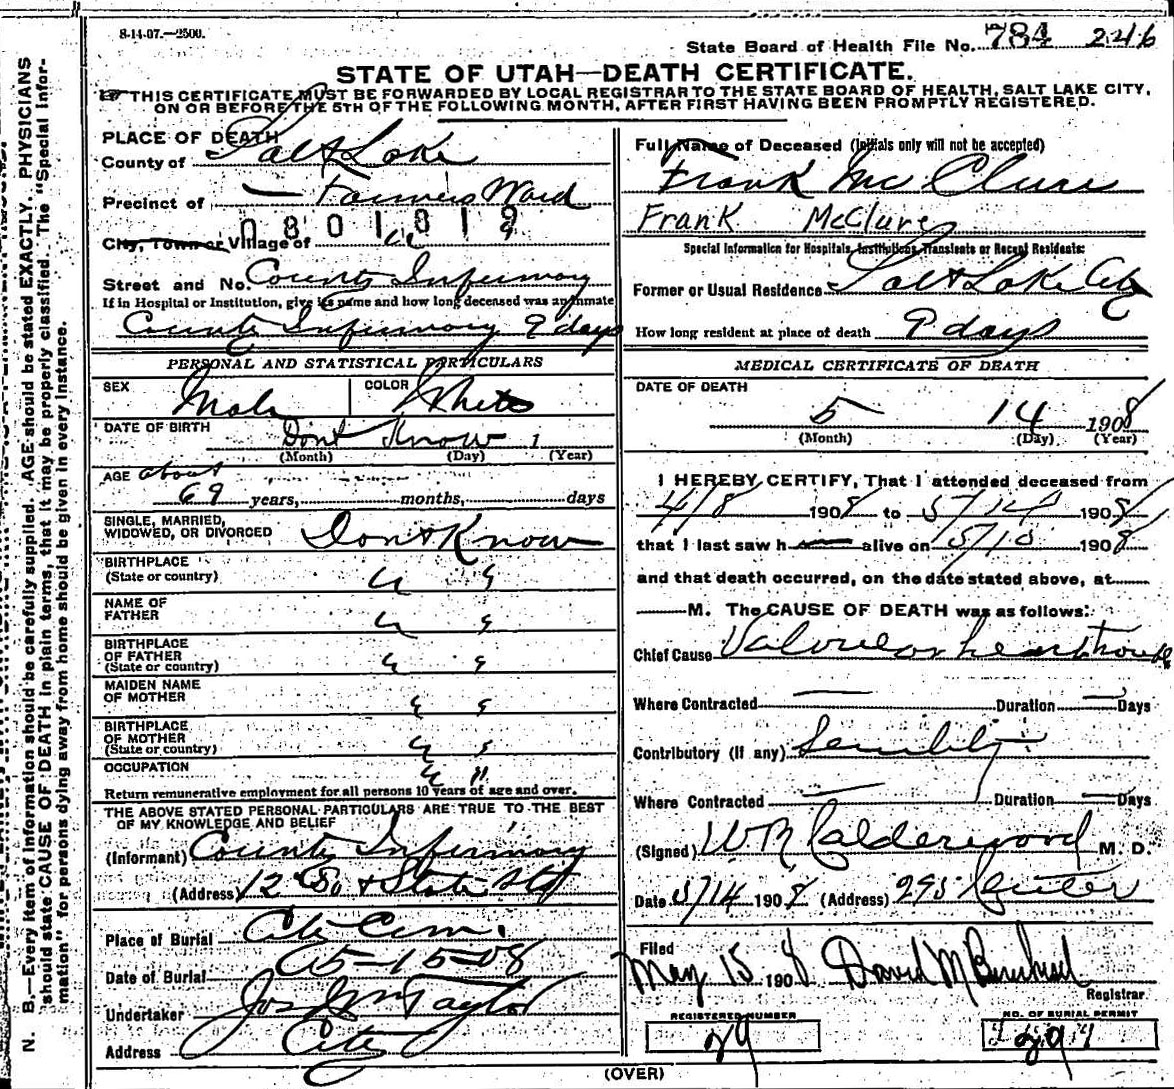 8-14-07.—2500.
State Board of Health File No. 784 246
STATE OF UTAH—DEATH CERTIFICATE.
THIS CERTIFICATE MUST BE FORWARDED BY LOCAL REGISTRAR TO THE STATE BOARD OF HEALTH, SALT LAKE CITY,
ON OR BEFORE THE 5TH OF THE FOLLOWING MONTH, AFTER FIRST HAVING BEEN PROMPTLY REGISTERED.
N. B.—Every item of information should be carefully supplied. AGE should be stated EXACTLY. PHYSICIANS
should state CAUSE OF DEATH in plain terms, that it may be properly classified. The "Special Infor-
mation" for persons dying away from home should be given in every instance.
PLACE OF DEATH
County of Salt Lake
Precinct of — Farmers Ward
0801819
City, Town or Village of " "
Street and No. County Infirmary
If in Hospital or Institution, give its name and how long deceased was an inmate
County Infirmary 9 days
PERSONAL AND STATISTICAL PARTICULARS
SEX Male COLOR White
DATE OF BIRTH Dont Know 1
(Month) (Day) (Year)
AGE about
69 years, months, days
SINGLE, MARRIED,
WIDOWED, OR DIVORCED Dont Know
BIRTHPLACE
(State or country) " "
NAME OF
FATHER " "
BIRTHPLACE
OF FATHER
(State or country) " "
MAIDEN NAME
OF MOTHER " "
BIRTHPLACE
OF MOTHER
(State or country) " "
OCCUPATION " "
Return remunerative employment for all persons 10 years of age and over.
THE ABOVE STATED PERSONAL PARTICULARS ARE TRUE TO THE BEST
OF MY KNOWLEDGE AND BELIEF
(Informant) County Infirmary
(Address) 12 So & State St
Place of Burial City Cem.
Date of Burial 5-15-08
Undertaker Jos Wm Taylor
Address City
Full Name of Deceased (Initials only will not be accepted)
Frank McClure
Frank McClure
Special Information for Hospitals, Institutions, Transients or Recent Residents:
Former or Usual Residence Salt Lake City
How long resident at place of death 9 days
MEDICAL CERTIFICATE OF DEATH
DATE OF DEATH
5 14 1908
(Month) (Day) (Year)
I HEREBY CERTIFY, That I attended deceased from
4/8 1908 to 5/14 1908
that I last saw h alive on 5/10 1908
and that death occurred, on the date stated above, at
M. The CAUSE OF DEATH was as follows:
Chief Cause heart
Where Contracted — Duration — Days
Contributory (if any) Senility
Where Contracted — Duration — Days
(Signed) W R Calderwood M. D.
Date 5/14 1908 (Address) 295 Center
Filed
May 15 1908 David M
Registrar
REGISTERED NUMBER
29
NO. OF BURIAL PERMIT
(OVER)